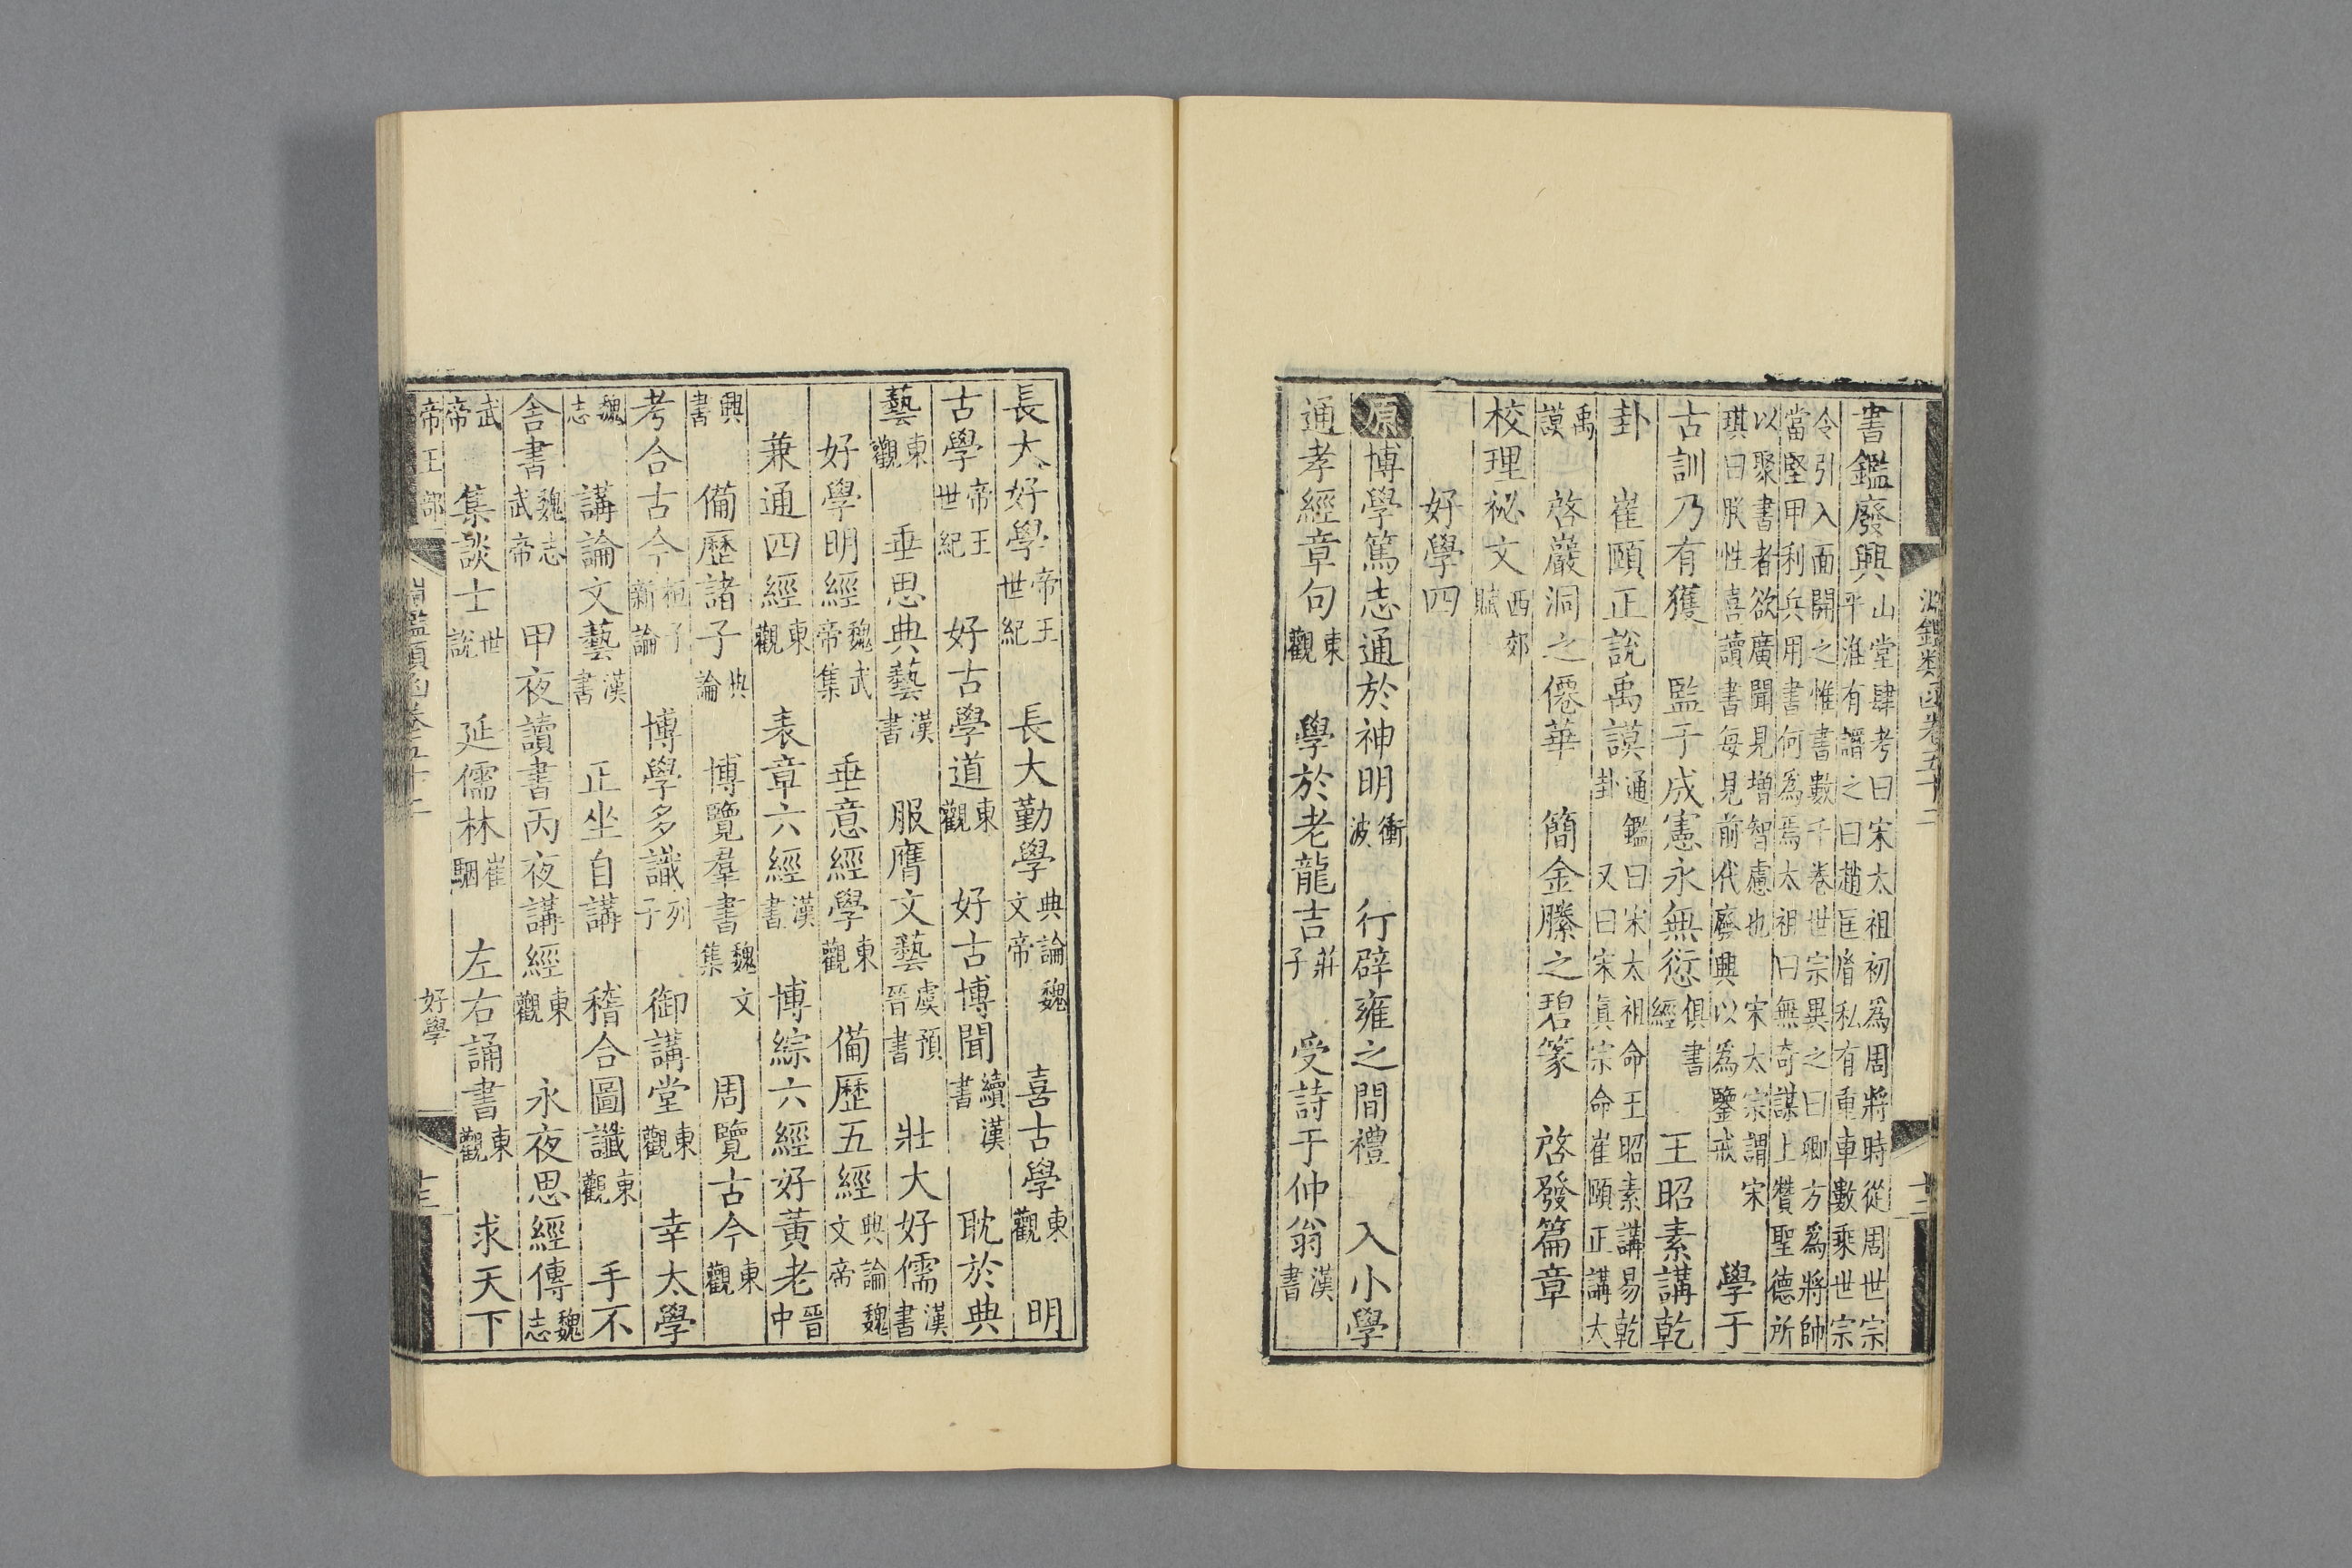 書鑑廢興山堂肆考曰宋太祖初爲周將時從周世宗
平淮有譖之曰趙匡胤私有重車數乘世宗
令引入面開之惟書數千卷世宗異之曰卿方爲將帥
當堅甲利兵用書何爲焉太祖曰無奇謀上贊聖德所
以聚書者欲廣聞見增智慮也 宋太宗謂宋
琪曰朕性喜讀書每見前代廢興以爲鑒戒 學于
古訓乃有獲 監于成憲永無愆俱書經 王昭素講乾
卦 崔頤正說禹謨通鑑曰宋太祖命王昭素講易乾
卦 又曰宋真宗命崔頤正講大
禹謨 啓巖洞之僊華 簡金縢之碧篆 啓發篇章
校理祕文西郊賦
好學四
原博學篤志通於神明衝波 行辟雍之間禮 入小學
通孝經章句東觀 學於老龍吉莊子 受詩于仲翁漢書
淵鑑類函卷五十二
長大好學帝王世紀 長大勤學典論魏文帝 喜古學東觀 明
古學帝王世紀 好古學道東觀 好古博聞續漢書 耽於典
藝東觀 垂思典藝漢書 服膺文藝虞預晉書 壯大好儒漢書
好學明經魏武帝集 垂意經學東觀 備歷五經典論魏文帝
兼通四經東觀 表章六經漢書 博綜六經好黃老晉中
興書 備歷諸子典論 博覽羣書魏文集 周覽古今東觀
考合古今桓子新論 博學多識列子 御講堂東觀 幸太學
魏志 講論文藝漢書 正坐自講 稽合圖讖東觀 手不
舍書魏志武帝 甲夜讀書丙夜講經東觀 永夜思經傳魏志
武帝 集談士世說 延儒林崔駰 左右誦書東觀 求天下
帝王部 淵鑑類函卷五十二 好學 十三